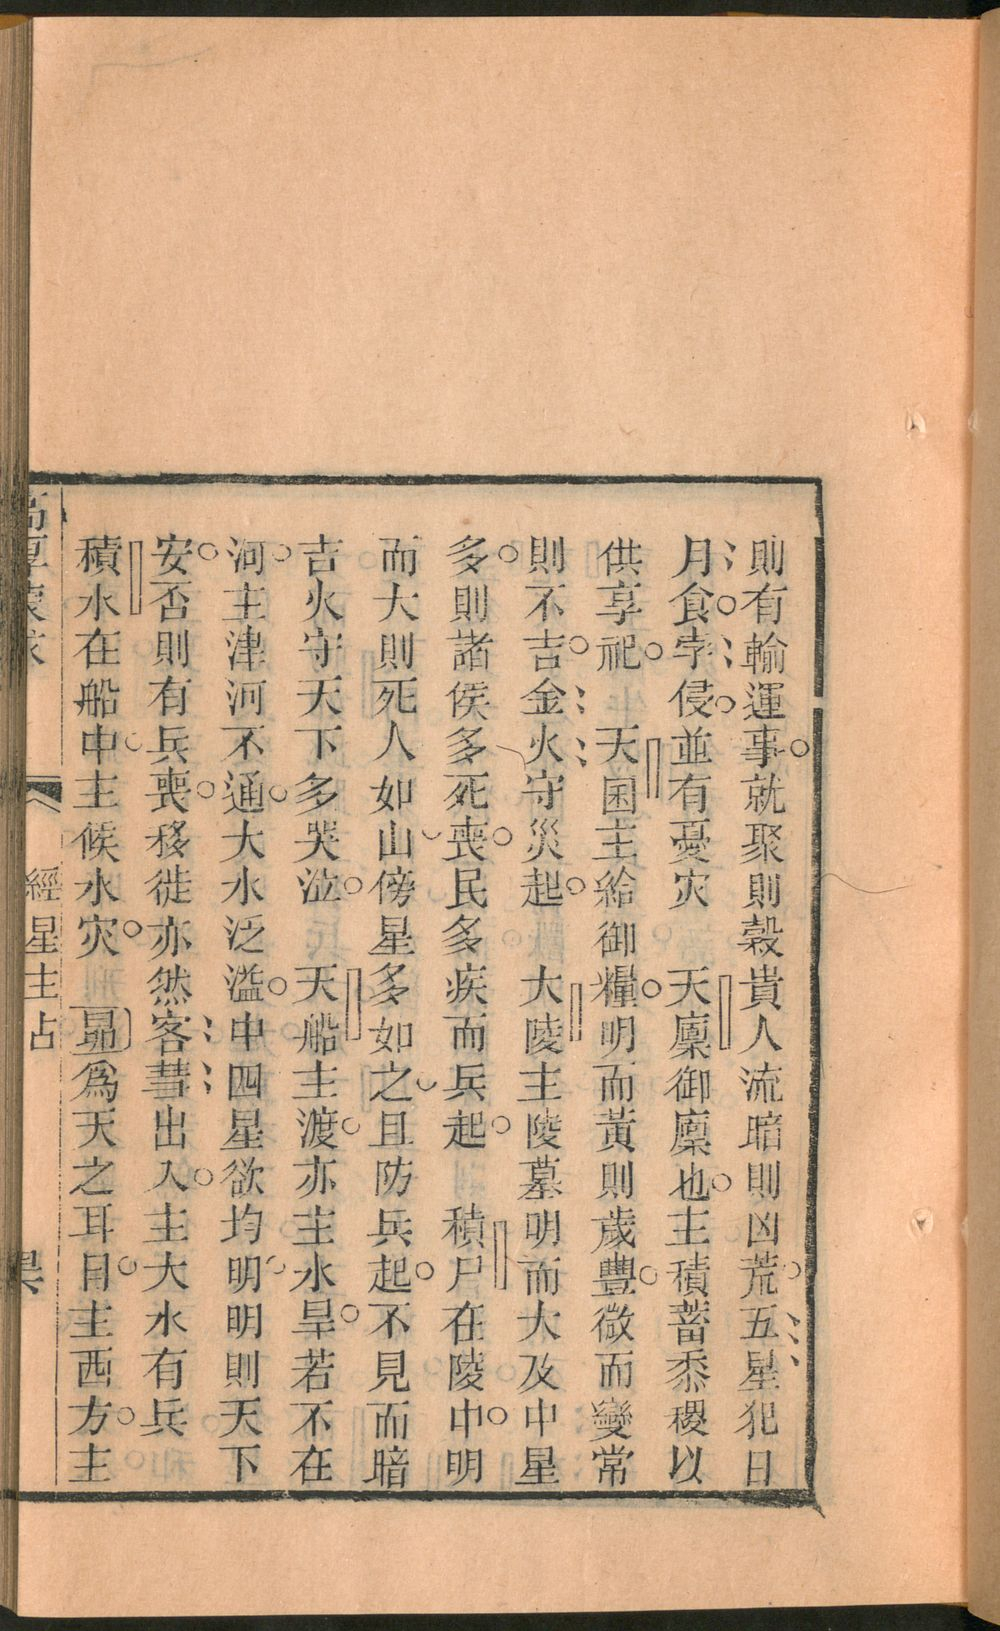 則有輸運事就聚則穀貴人流暗則凶荒五星犯日
月食孛侵並有憂灾　天廩御廩也主積蓄黍稷以
供享祀　天囷主給御糧明而黃則歲豐微而變常
則不吉金火守災起　大陵主陵墓明而大及中星
多則諸侯多死喪民多疾而兵起　積尸在陵中明
而大則死人如山傍星多如之且防兵起不見而暗
吉火守天下多哭泣　天船主渡亦主水旱若不在
河主津河不通大水泛溢中四星欲均明明則天下
安否則有兵喪移徙亦然客彗出入主大水有兵
積水在船中主候水灾　昴爲天之耳目主西方主
經星主占